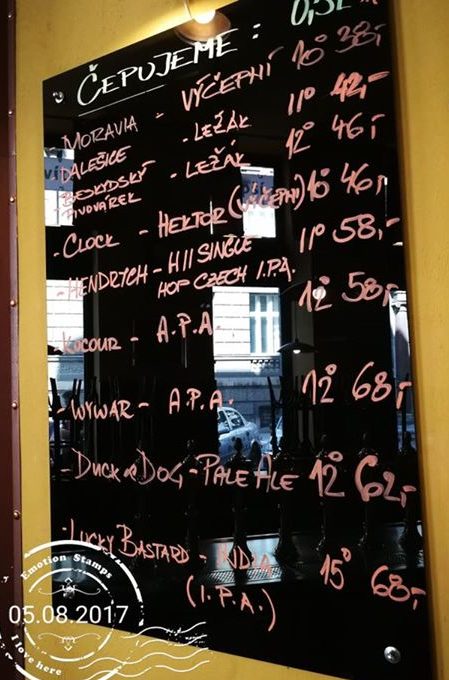 ČEPUJEME: 0,5L
MORAVIA - VÝČEPNÍ 10° 38,-
DALEŠICE - LEŽÁK 11° 42,-
BESKYDSKÝ PIVOVÁREK - LEŽÁK 12° 46,-
-CLOCK - HEKTOR (VÝČEPNÍ) 10° 46,-
-HENDRYCH - H11 SINGLE 11° 58,-
HOP CZECH I.P.A.
KOCOUR - A.P.A. 12° 58,-
-WYWAR - A.P.A. 12° 68,-
-DUCK & DOG - PALE ALE 12° 62,-
-LUCKY BASTARD - INDIA 15° 68,-
(I.P.A.)
Emotion Stamps
05.08.2017
I love here